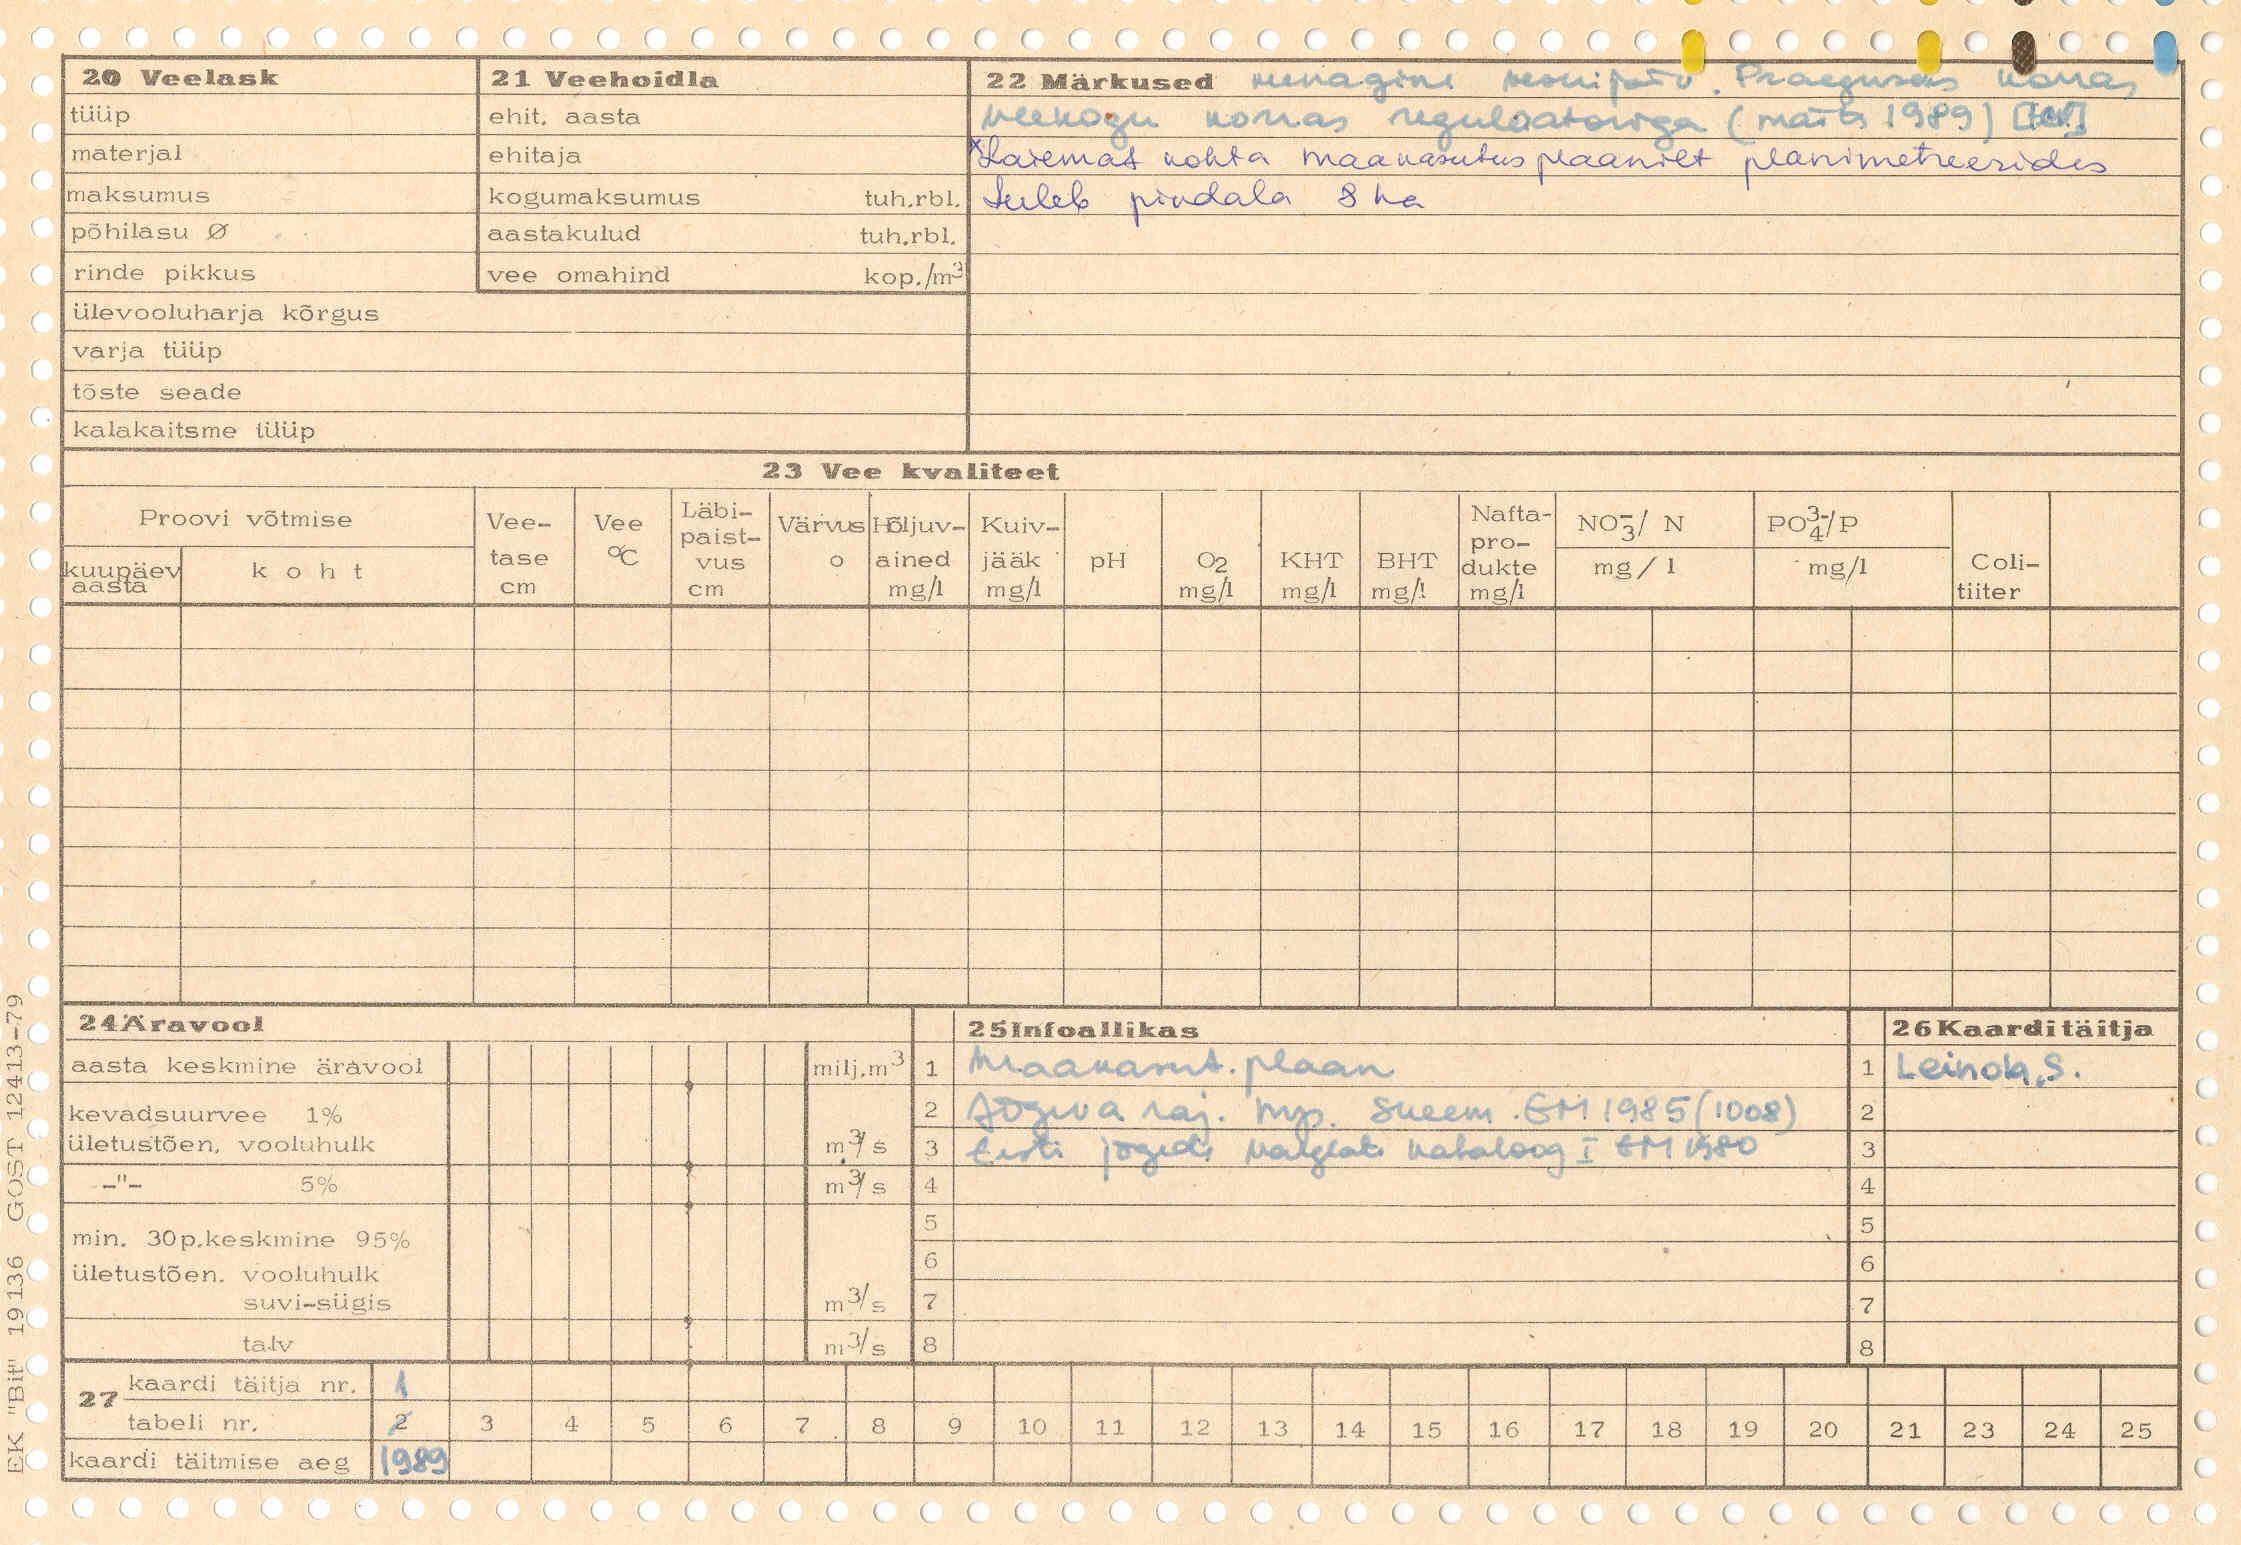 20 Veelask
tüüp
materjal
maksumus
põhilasu Ø
rinde pikkus
ülevooluharja kõrgus
varja tüüp
tõste seade
kalakaitsme tüüp
21 Veehoidla
ehit. aasta
ehitaja
kogumaksumus tuh.rbl.
aastakulud tuh.rbl.
vee omahind kop./m³
22 Märkused kunagine veskipais. Praeguses korras
veekogu korras regulaatoriga (märts 1989)
x Laiemat kohta maakasutus plaanilt planimetreerides
tuleb pindala 8 ha
23 Vee kvaliteet
Proovi võtmise
kuupäev aasta
koht
Vee-tase cm
Vee °C
Läbi-paist-vus cm
Värvus o
Hõljuv-ained mg/l
Kuiv-jääk mg/l
pH
O₂ mg/l
KHT mg/l
BHT mg/l
Nafta-pro-dukte mg/l
NO₃⁻/ N mg/l
PO₄³⁻/P mg/l
Coli-tiiter
24 Äravool
aasta keskmine äravool milj.m³
kevadsuurvee 1%
ületustõen. vooluhulk m³/s
-"- 5% m³/s
min. 30p.keskmine 95%
ületustõen. vooluhulk
suvi-sügis m³/s
talv m³/s
25 Infoallikas
1 Maakasut. plaan
2 Jõgeva raj. hüp. skeem. EM 1985 (1008)
3 Eesti jõgede valglate kataloog I EM 1980
4
5
6
7
8
26 Kaarditäitja
1 Leinola, S.
2
3
4
5
6
7
8
27
kaardi täitja nr. 1
tabeli nr. 2 3 4 5 6 7 8 9 10 11 12 13 14 15 16 17 18 19 20 21 23 24 25
kaardi täitmise aeg 1989
EK "Bit" 19136 GOST 12413-79